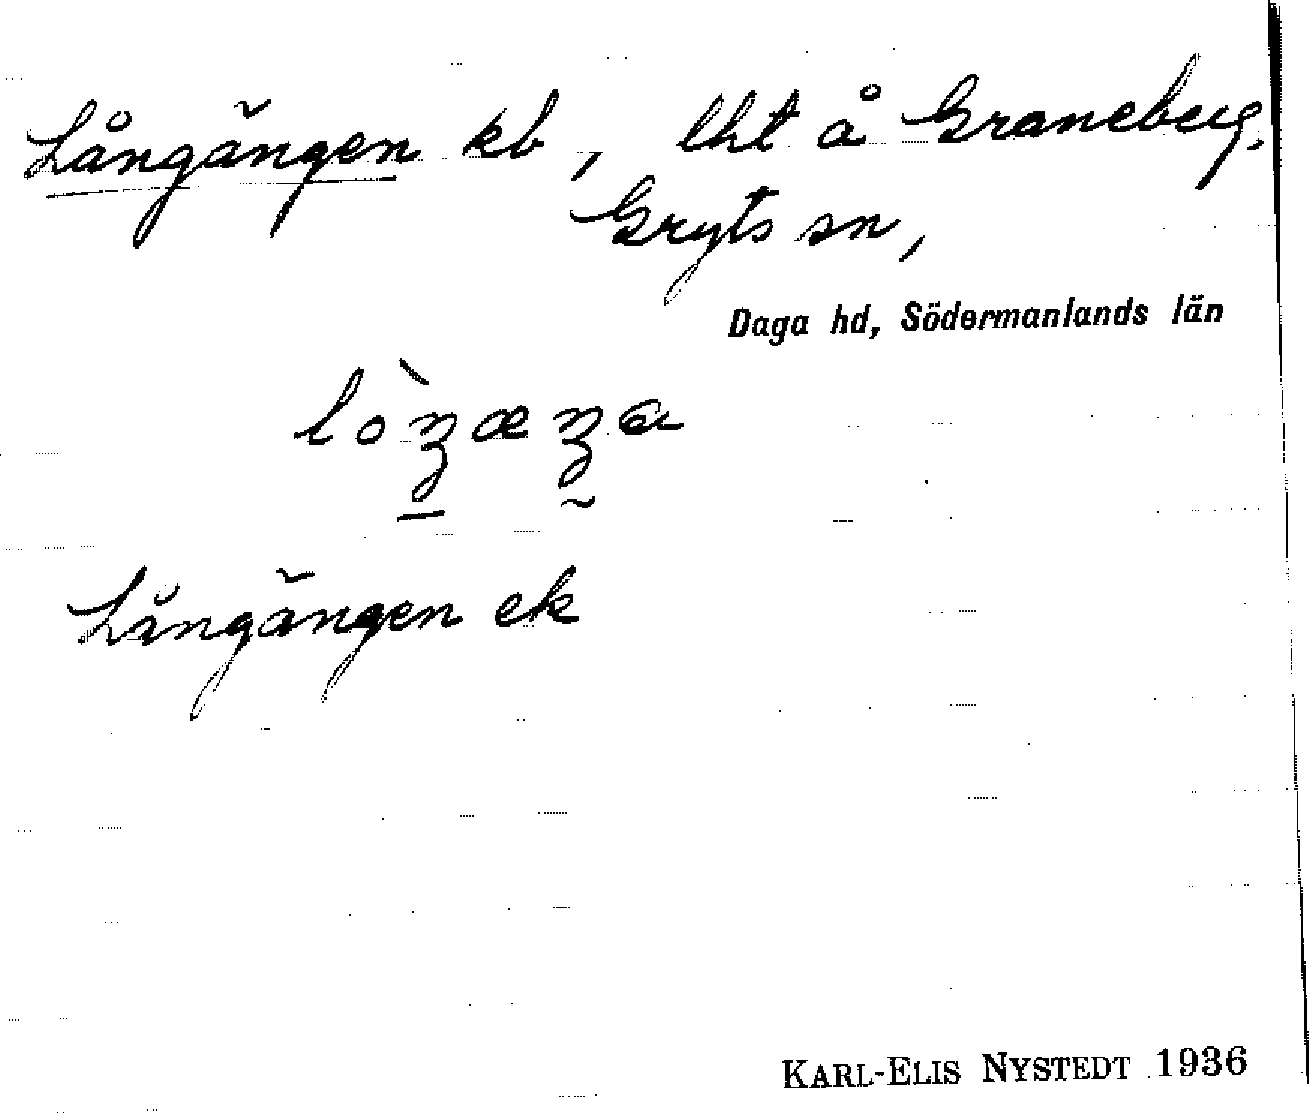 Långängen kb, lht å Graneberg,
Gryts sn,
Daga hd, Södermanlands län
lòŋæŋa
Långängen ek
KARL-ELIS NYSTEDT 1936